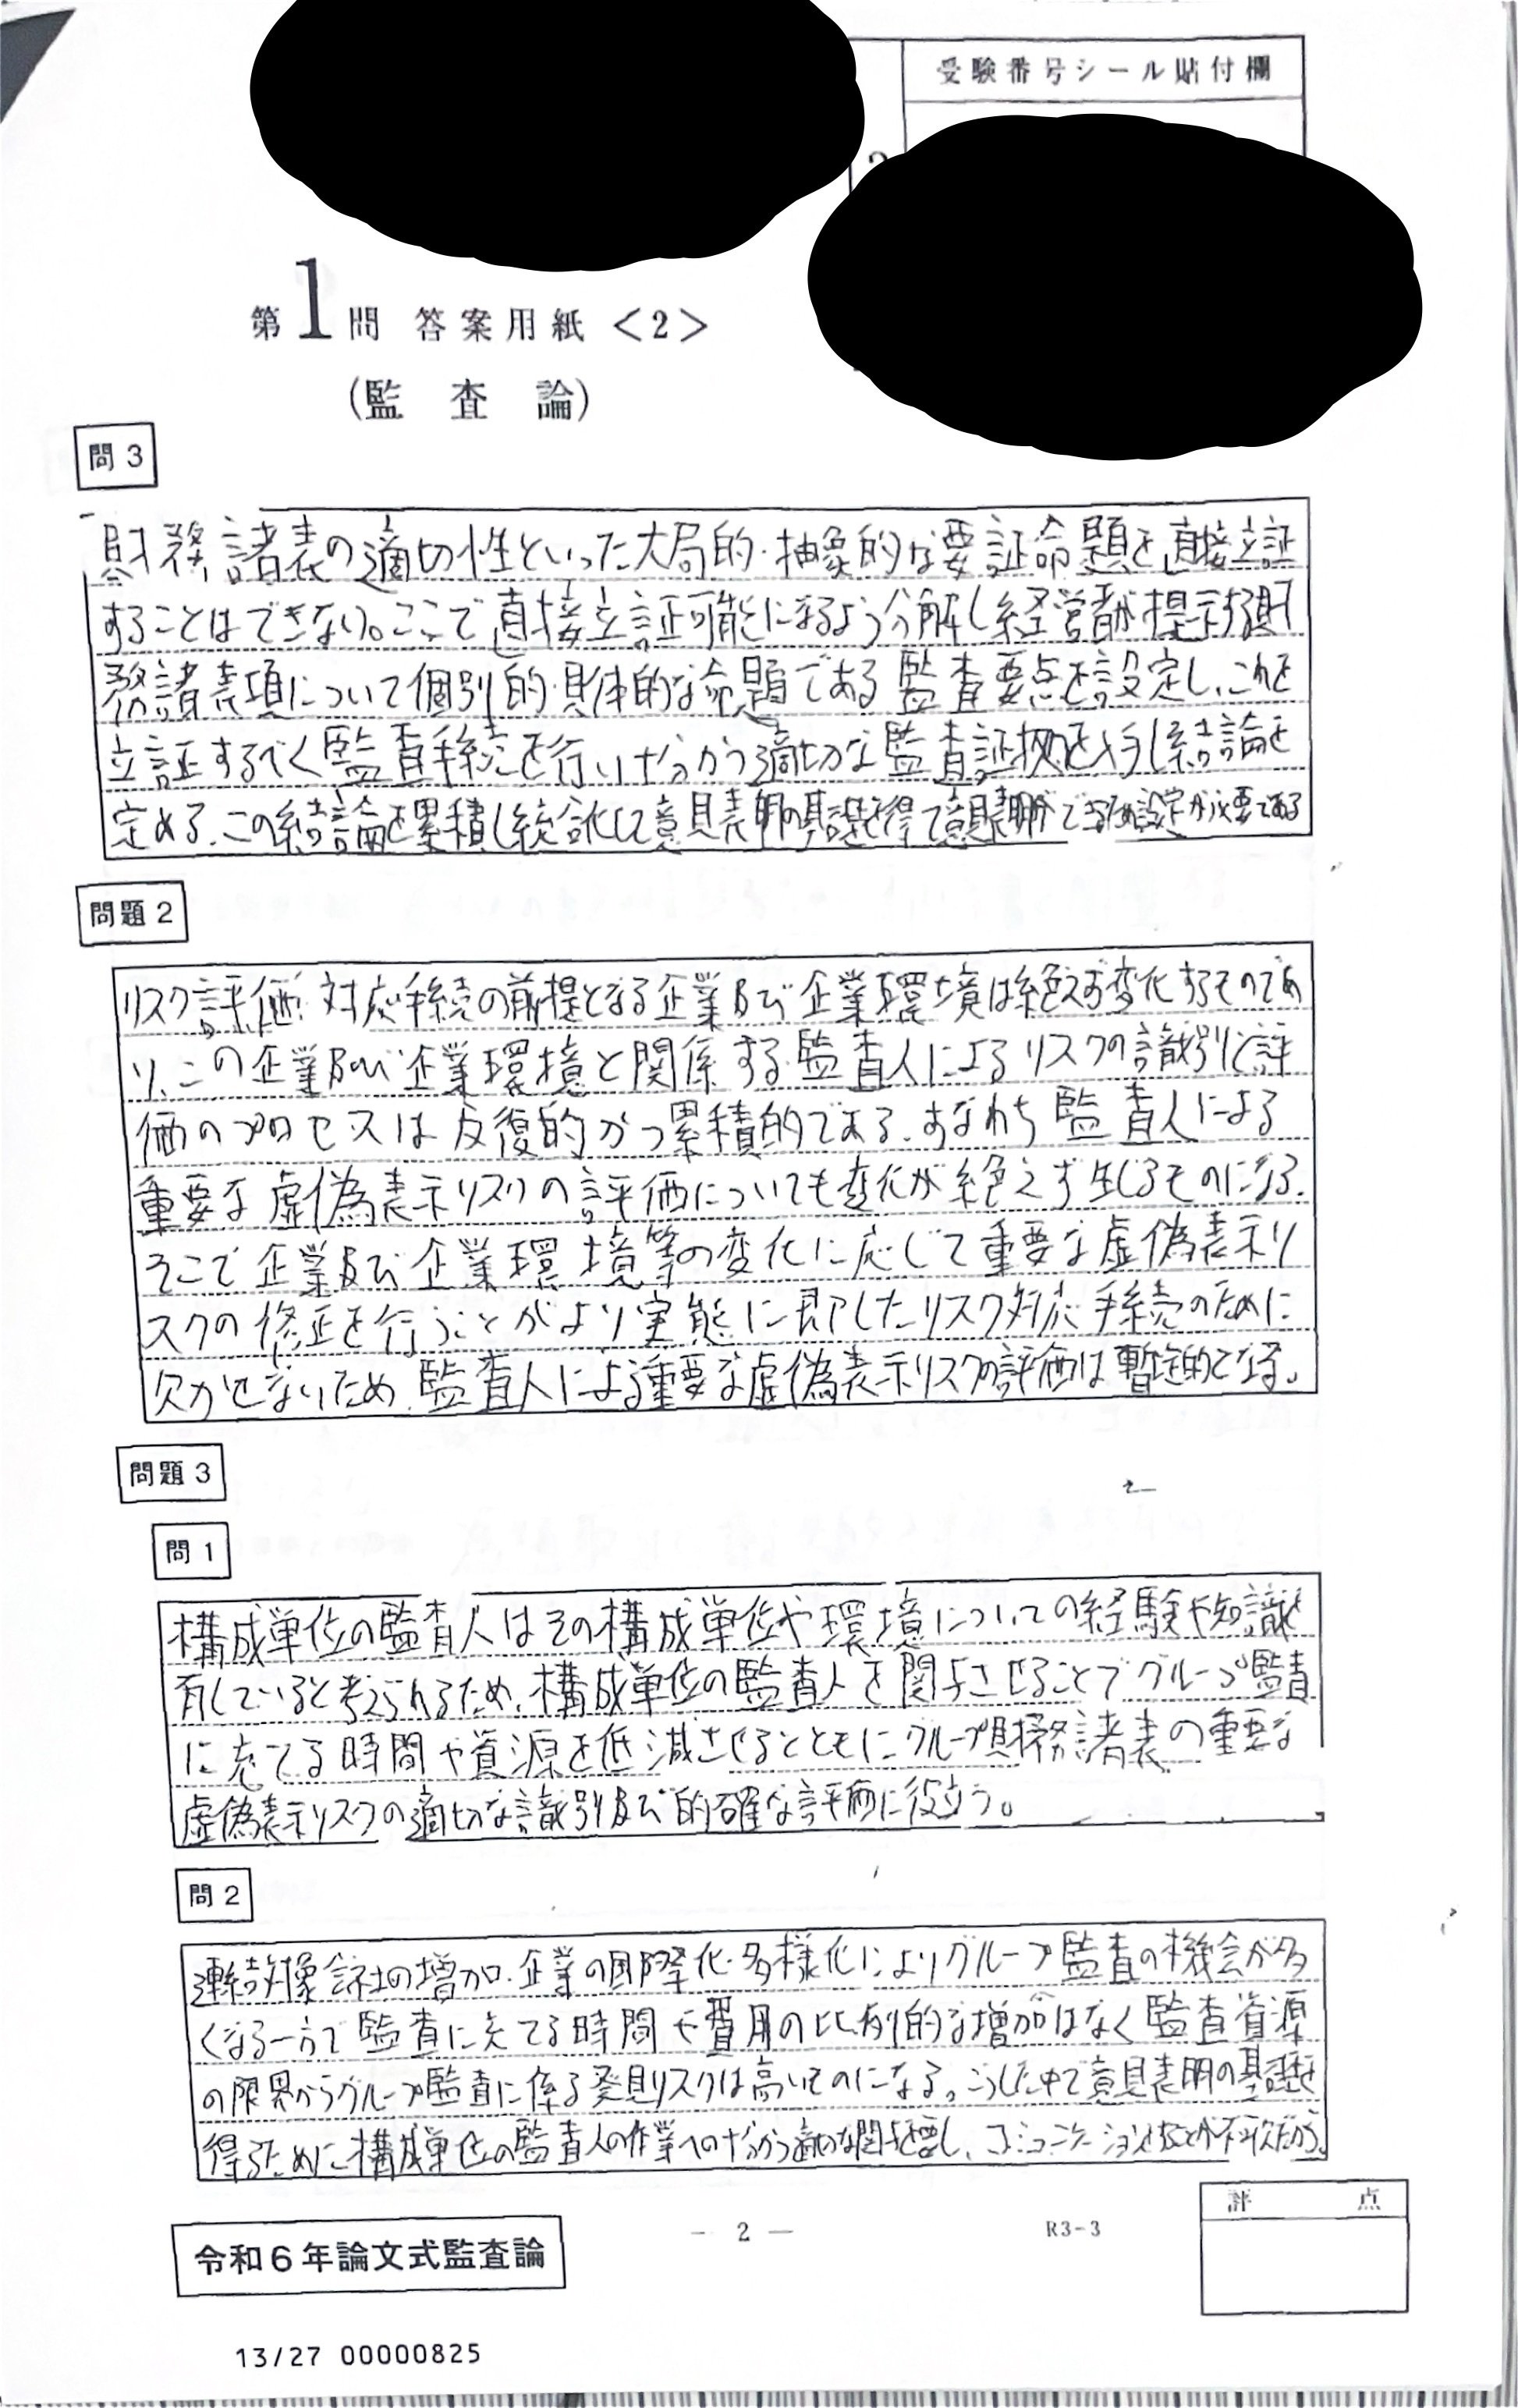 受験番号シール貼付欄
第1問 答案用紙<2>
(監査論)
問3
財務諸表の適切性といった大局的・抽象的な要証命題を直接立証
することはできない。ここで直接立証可能になるよう分解し経営者が提示する財
務諸表項について個別的・具体的な命題である監査要点を設定し、これを
立証するべく監査手続を行い十分かつ適切な監査証拠を入手し結論を
定める。この結論を累積し統合化して意見表明の基礎を得て意見表明ができるため設定が必要である
問題2
リスク評価・対応手続の前提となる企業及び企業環境は絶えず変化するものであ
り、この企業及び企業環境と関係する監査人によるリスクの識別と評
価のプロセスは反復的かつ累積的である。すなわち監査人による
重要な虚偽表示リスクの評価についても変化が絶えず生じるものになる。
そこで企業及び企業環境等の変化に応じて重要な虚偽表示リ
スクの修正を行うことがより実態に即したリスク対応手続のために
欠かせないため、監査人による重要な虚偽表示リスクの評価は暫定的となる。
問題3
問1
構成単位の監査人はその構成単位や環境についての経験や知識を
有していると考えられるため、構成単位の監査人を関与させることでグループ監査
に充てる時間や資源を低減させるとともにグループ財務諸表の重要な
虚偽表示リスクの適切な識別及び的確な評価に役立つ。
問2
連結対象会社の増加、企業の国際化・多様化によりグループ監査の機会が多
くなる一方で監査に充てる時間や費用の比例的な増加はなく監査資源
の限界からグループ監査に係る発見リスクは高いものになる。こうした中で意見表明の基礎を
得るために構成単位の監査人の作業への十分かつ適切な関与を要し、コミュニケーションをとることが不可欠だから。
評点
令和6年論文式監査論
— 2 —
R3-3
13/27 00000825